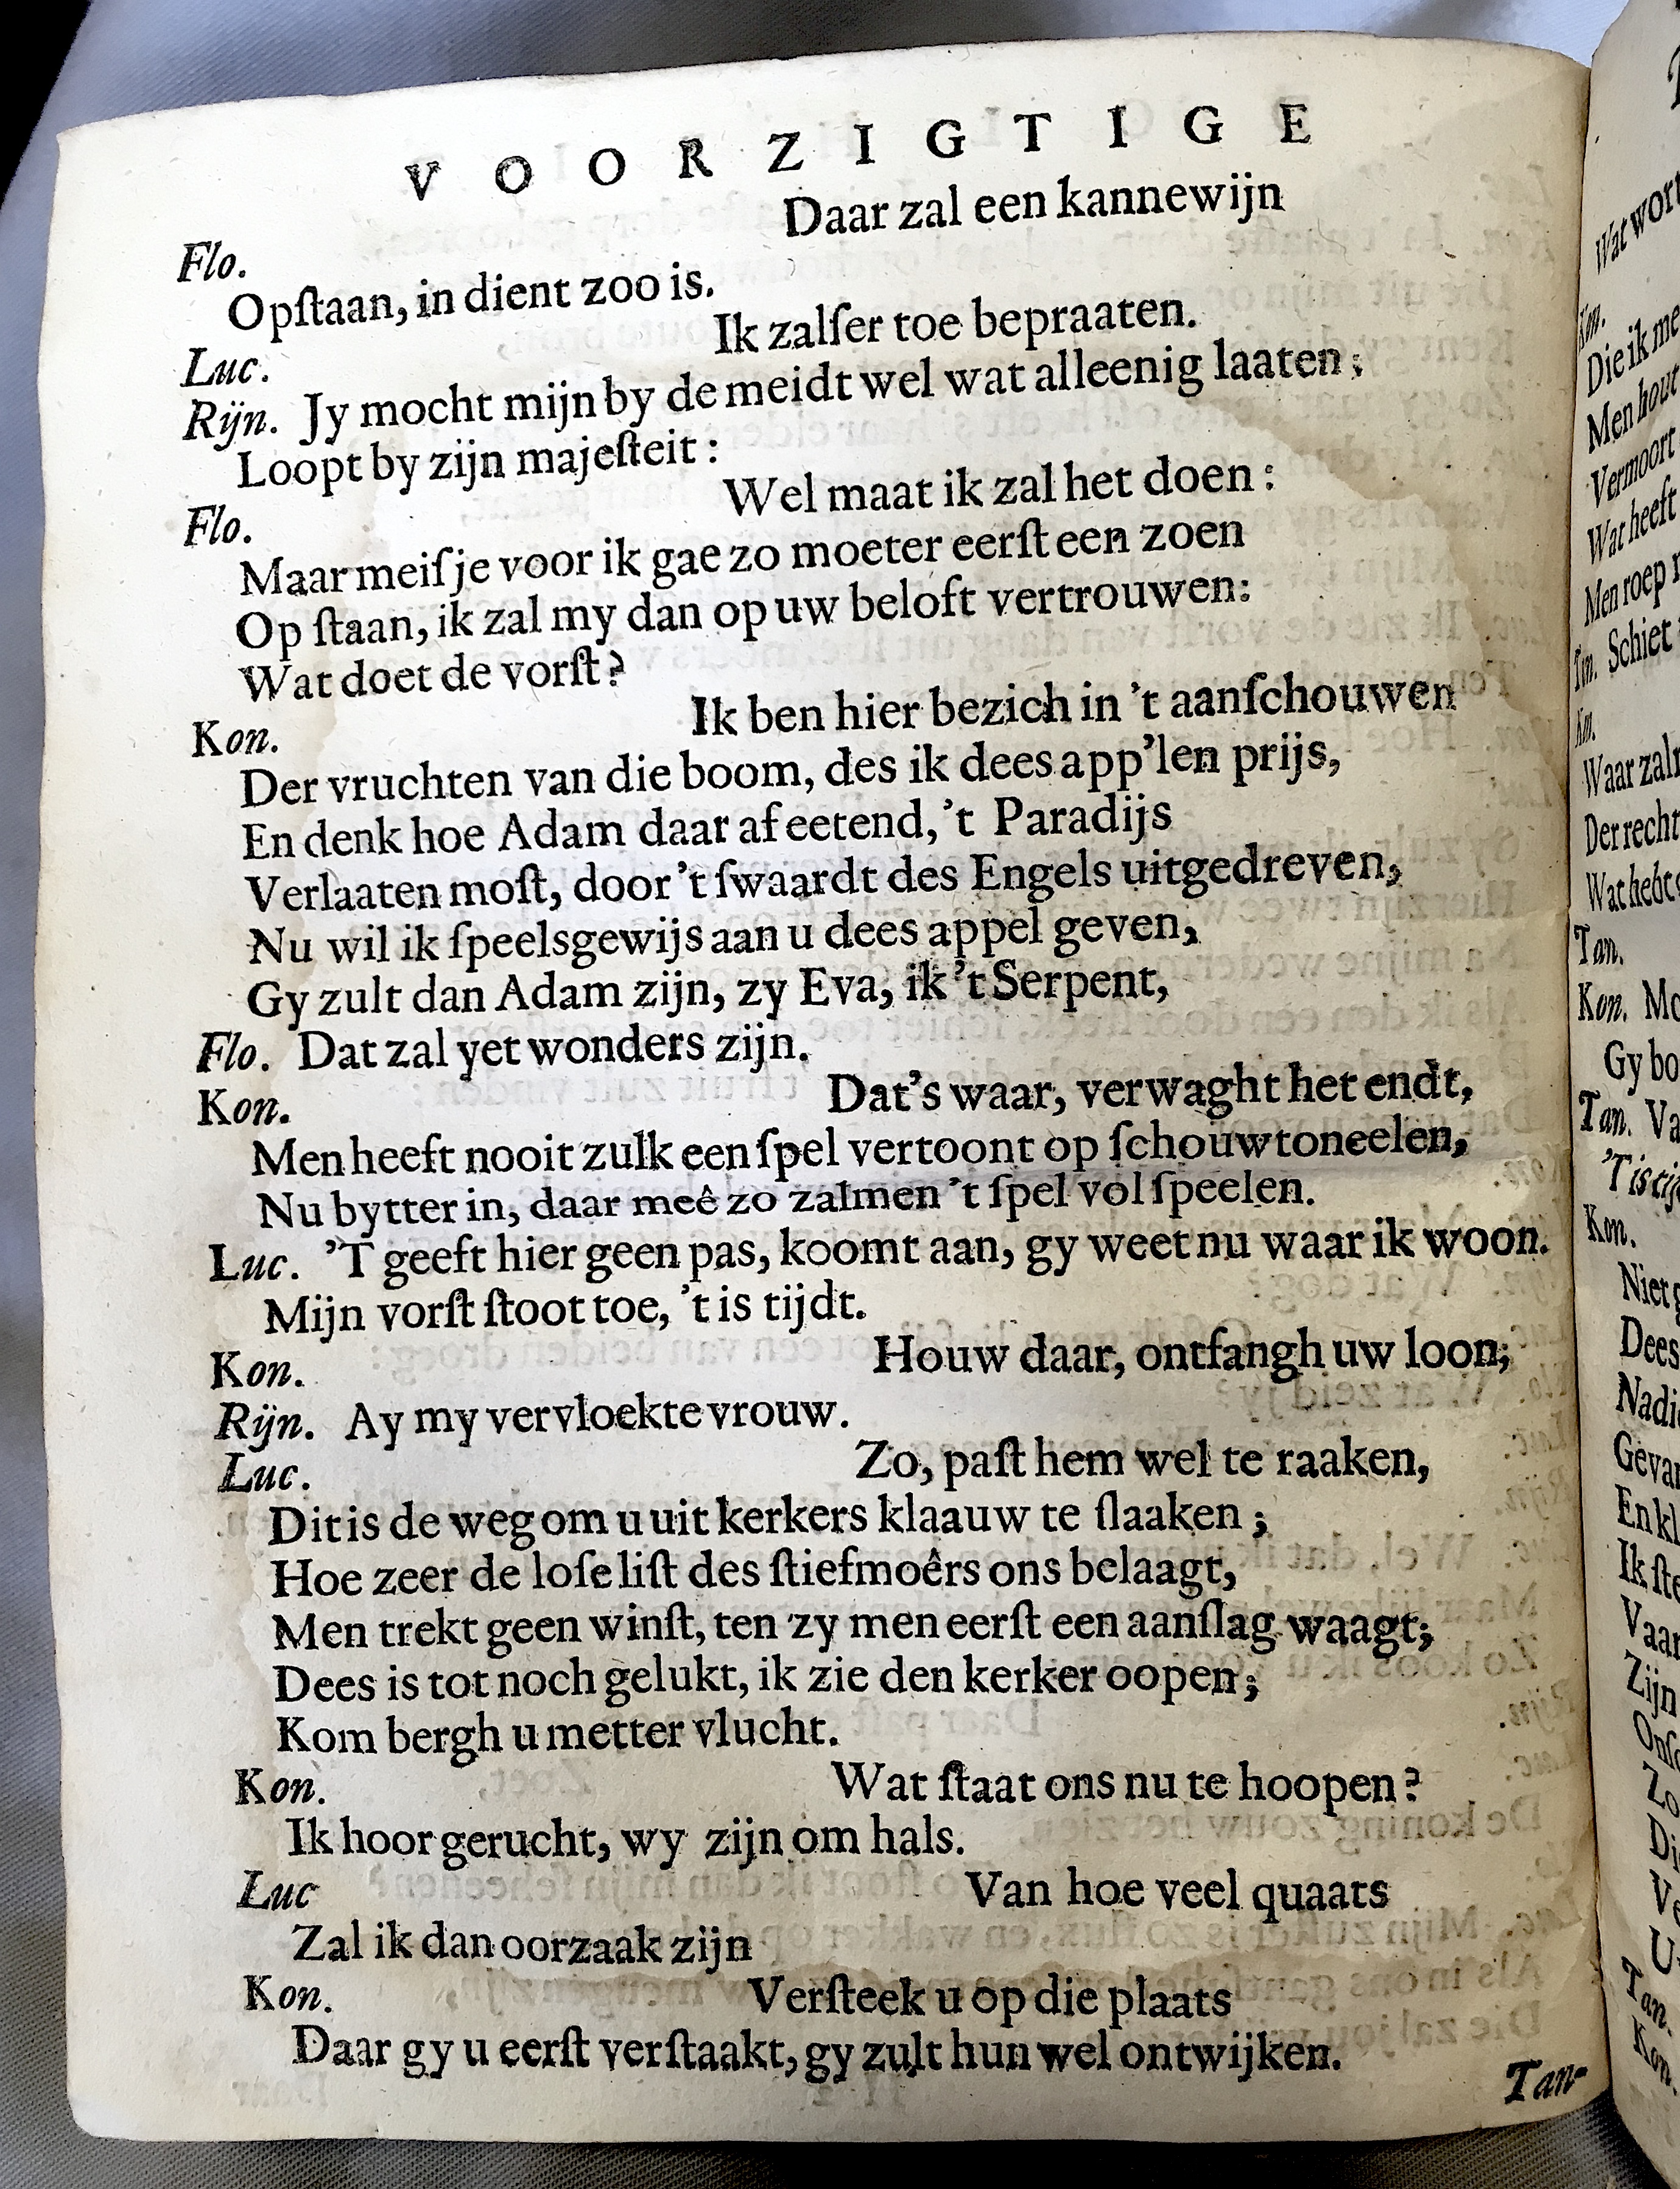 V O O R Z I G T I G E
Flo. Daar zal een kannewijn
Opſtaan, in dient zoo is.
Luc. Ik zalſer toe bepraaten.
Rijn. Jy mocht mijn by de meidt wel wat alleenig laaten;
Loopt by zijn majeſteit:
Flo. Wel maat ik zal het doen:
Maar meiſje voor ik gae zo moeter eerſt een zoen
Op ſtaan, ik zal my dan op uw beloft vertrouwen:
Wat doet de vorſt?
Kon. Ik ben hier bezich in 't aanſchouwen
Der vruchten van die boom, des ik dees app'len prijs,
En denk hoe Adam daar af eetend, 't Paradijs
Verlaaten moſt, door 't ſwaardt des Engels uitgedreven,
Nu wil ik ſpeelsgewijs aan u dees appel geven,
Gy zult dan Adam zijn, zy Eva, ik 't Serpent,
Flo. Dat zal yet wonders zijn.
Kon. Dat's waar, verwaght het endt,
Men heeft nooit zulk een ſpel vertoont op ſchouwtoneelen,
Nu bytter in, daar meê zo zalmen 't ſpel vol ſpeelen.
Luc. 'T geeft hier geen pas, koomt aan, gy weet nu waar ik woon.
Mijn vorſt ſtoot toe, 't is tijdt.
Kon. Houw daar, ontfangh uw loon;
Rijn. Ay my vervloekte vrouw.
Luc. Zo, paſt hem wel te raaken,
Dit is de weg om u uit kerkers klaauw te ſlaaken;
Hoe zeer de loſe liſt des ſtiefmoêrs ons belaagt,
Men trekt geen winſt, ten zy men eerſt een aanſlag waagt;
Dees is tot noch gelukt, ik zie den kerker oopen;
Kom bergh u metter vlucht.
Kon. Wat ſtaat ons nu te hoopen?
Ik hoor gerucht, wy zijn om hals.
Luc Van hoe veel quaats
Zal ik dan oorzaak zijn
Kon. Verſteek u op die plaats
Daar gy u eerſt verſtaakt, gy zult hun wel ontwijken.
Tan-
Wat wort
Kon.
Die ik me
Men hout
Vermoort
Wat heeft
Men roep
Tan. Schiet
Kon.
Waar zal
Der recht
Wat hebt
Tan.
Kon. Mo
Gy bo
Tan. Va
'T is tij
Kon.
Niet g
Dees
Nadi
Gevan
En kl
Ik ſte
Vaar
Zijn
Onſ
Zo
Di
Ve
U
Tan.
Kon.